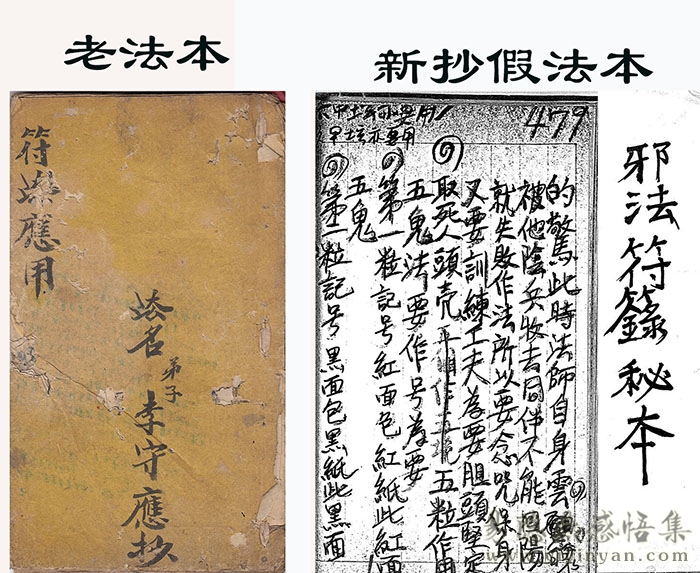 老法本
新抄假法本
符 應用
法名 弟子 李守應抄
479
邪法符籙秘本
的驚此時法師自身雲
被他陰兵收去同伴不能 陽
就失敗作法所以要念咒保身
又要訓練工夫為要胆頭堅定
取死人頭壳 五粒作用
五鬼法要作号為要
第一粒記号紅面包紅紙此紅面
五鬼
第二粒記号黑面包黑紙此黑面
感悟集